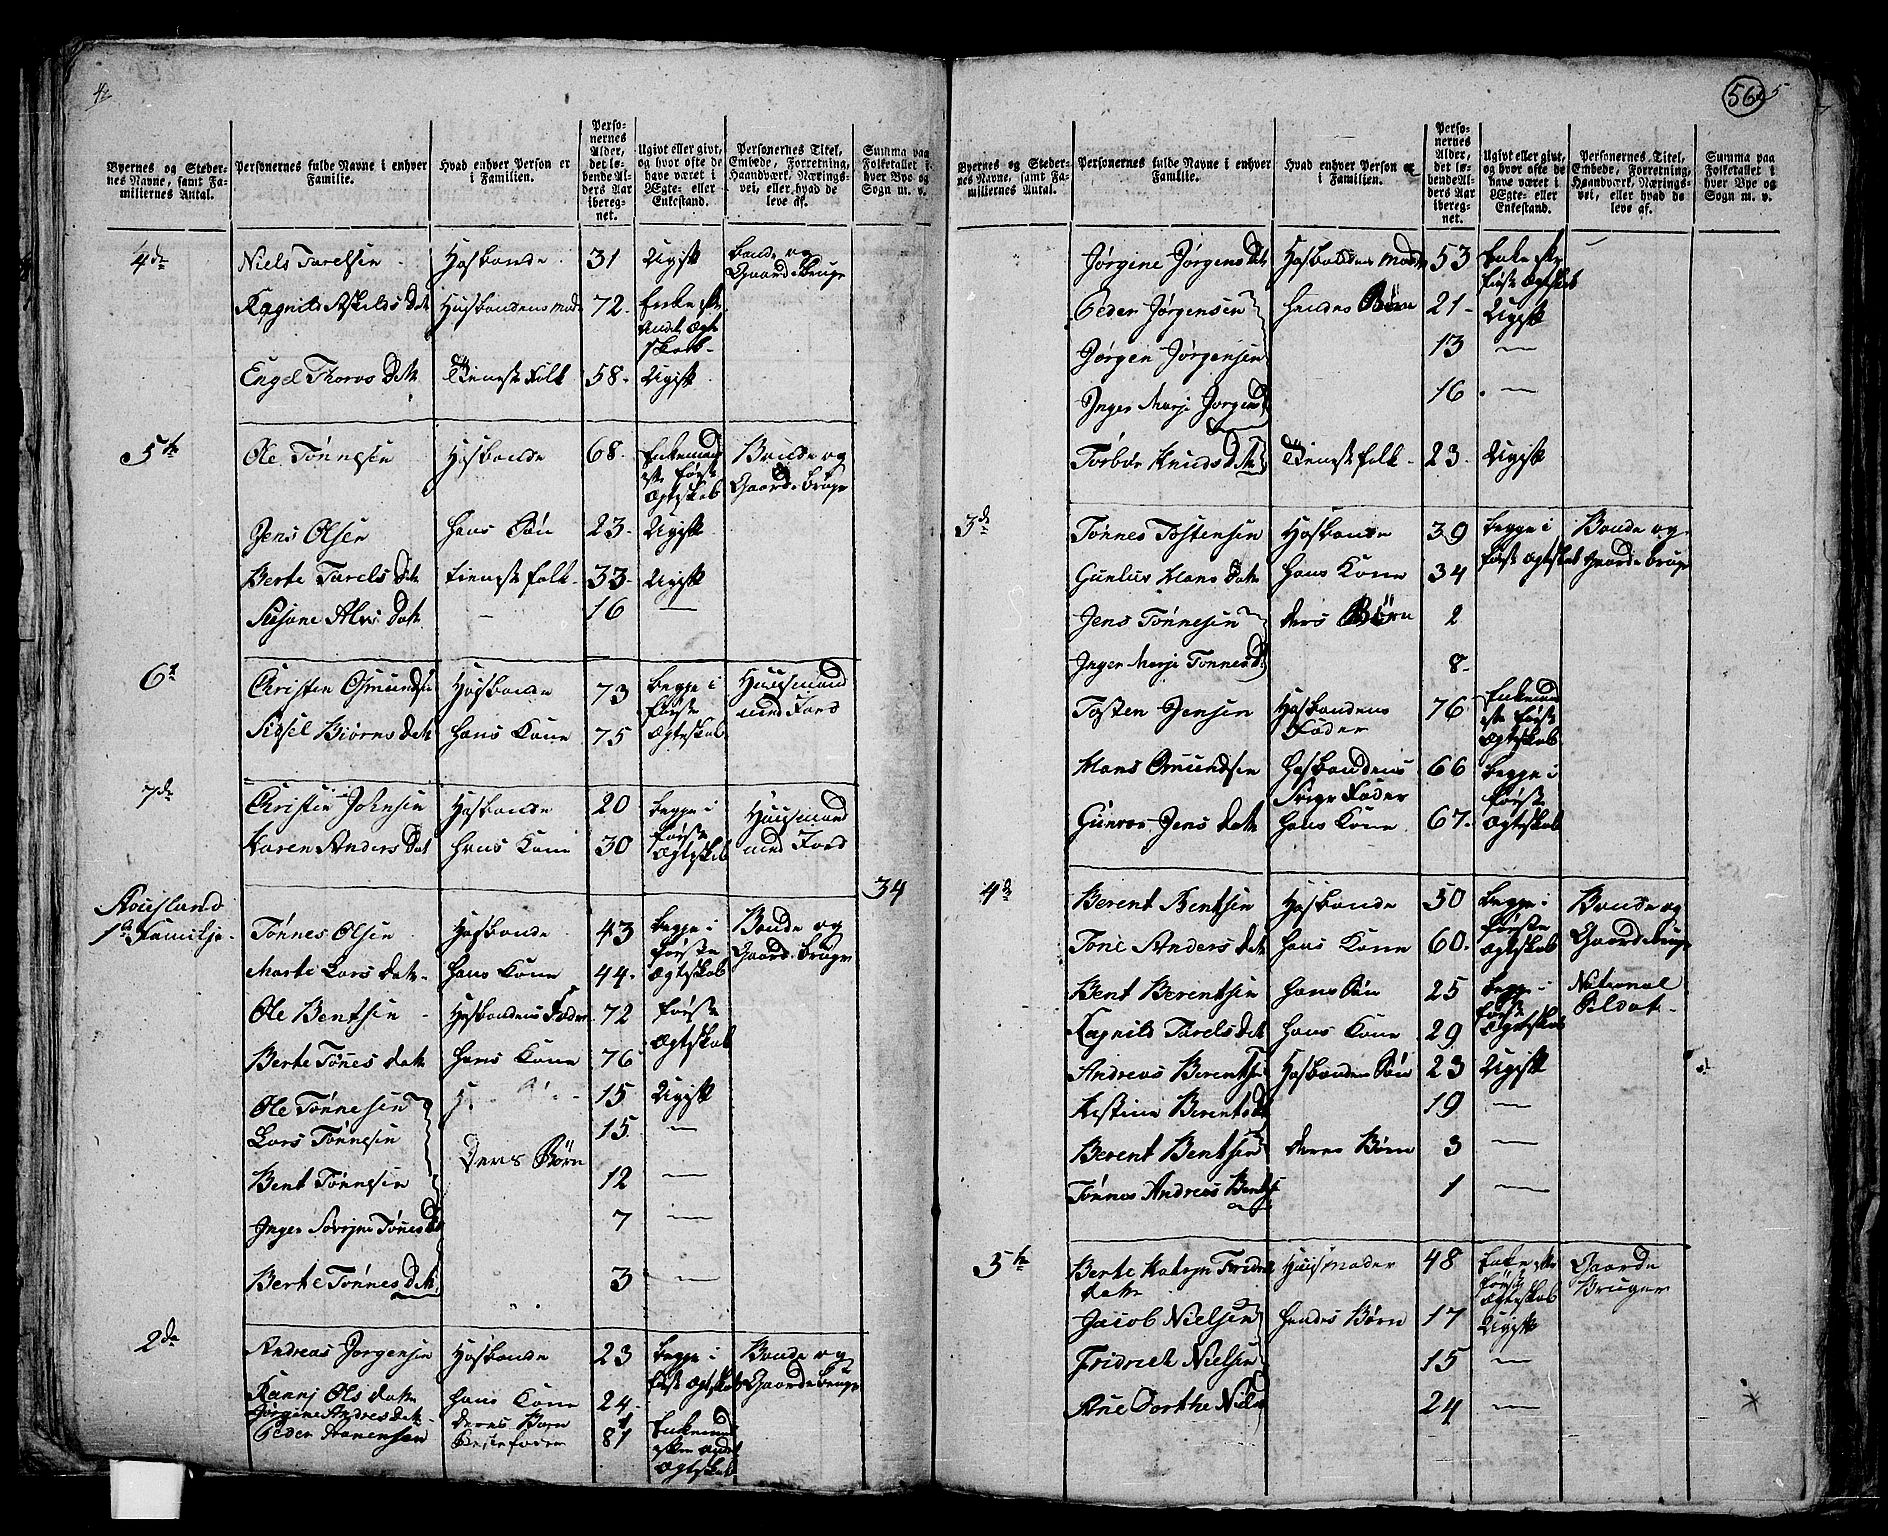 4
Byernes og Stedernes Navne, samt Familiernes Antal. | Personernes fulde Navne i enhver Familie. | Hvad enhver Person er i Familien. | Personernes Alder, det løbende Alders Aar iberegnet. | Ugivt eller givt, og hvor ofte de have været i Ægte- eller Enkestand. | Personernes Titel, Embede, Forretning, Haandværk, Næringsvei, eller hvad de leve af. | Summa paa Folketallet i hver Bye og Sogn m. v.
4de | Niels Tarelsen | Hosbonde | 31 | Ugift | Bonde og Gaard Bruger
Ragnild Askelds Datr | Husbondens Moder | 72 | Enke eftr Andet Ægteskab
Engel Thores Datr | Tieneste Folk | 58 | Ugift
5te | Ole Tønnesen | Hosbonde | 68 | Enkemand efter første Ægteskab | Bonde og Gaard bruger
Jens Olsen | hans Søn | 23 | Ugift
Berte Tarels Datr | tieneste folk | 33 | Ugift
Susane Alevs Datr | - | 16 | -
6te | Christen Osmundsen | Hosbonde | 73 | begge i første Ægteskab | Huusmand med Jord
Sidsel Biørns Datr | hans Kone | 75
7de | Christen Johnsen | Hosbonde | 20 | begge i første Ægteskab | Huusmand med Jord
Karen Anders Dat | hans Kone | 30
34
1ste Familje | Tønnes Olsen | Hosbonde | 43 | begge i første Ægteskab | Bonde og Gaard bruger
Marte Lars datr | hans Kone | 44
Ole Bentsen | Hosbondens Fader | 72 | første Ægteskab
Berte Tønes datr | hans Kone | 76
Ole Tønnesen | 15 | Ugift
Lars Tønnesen | 15 | -
Deres Børn
Bent Tønnesen | 12 | -
Inger Sørine Tønes D | 7 | -
Berte Tønnes datr | 3 | -
2den | Andreas Jørgensen | Hosbonde | 23 | begge i første Ægteskab | Bonde og Gaarde bruger
Ranni Ols datr | hans Kone | 24
Jørgine Andres datr | deres Barn | 1
Peder Hanensen | Bestefader | 81 | Enkemand efter andet Ægteskab
56
5
Byernes og Stedernes Navne, samt Familiernes Antal. | Personernes fulde Navne i enhver Familie. | Hvad enhver Person er i Familien. | Personernes Alder, det løbende Alders Aar iberegnet. | Ugivt eller givt, og hvor ofte de have været i Ægte- eller Enkestand. | Personernes Titel, Embede, Forretning, Haandværk, Næringsvei, eller hvad de leve af. | Summa paa Folketallet i hver Bye og Sogn m. v.
Jørgine Jørgens Datr | Hosbondens Moder | 53 | Enke eftr første Ægteskab
Peder Jørgensen | hendes Børn | 21 | Ugift
Jørgen Jørgensen | 13 | -
Inger Marje Jørgens D | 16 | -
Torbor Knuds Datr | Tieneste folk | 23 | Ugift
3de | Tønnes Tostensen | Hosbonde | 39 | begge i første Ægteskab | Bonde og Gaarde bruger
Gunlus Hans Datr | hans Kone | 34
Jens Tønnesen | deres Børn | 2
Inger Marje Tønnes D | 8
Tosten Jensen | Hosbondens Fader | 76 | Enkemand efte første Ægteskab
Hans Omundsen | Hosbondens Svige Fader | 66 | begge i første Ægteskab
Gunvor Jens datr | hans Kone | 67
4de | Berent Bentsen | Hosbonde | 50 | begge i første Ægteskab | Bonde og Gaardebruger
Tone Anders datr | hans Kone | 60
Bent Berentsen | hans Søn | 25 | begge i første Ægteskab | National Soldat
Ragnild Tarels datr | hans Kone | 29
Andreas Berentsen | Hosbondens Søn | 23 | Ugift
Kistine Berents D | 19 | -
Berent Bentsen | deres Børn | 3 | -
Tønnes Andreas Bents | 1 | -
5te | Berte Katrin Fridrik datr | Huusmoder | 48 | Enke eftr første Ægteskab | Gaarde Bruger
Jacob Nielsen | hendes Børn | 17 | Ugift
Fridrich Nielsen | 15 | -
Ane Dorthe Niels D | 24 | -